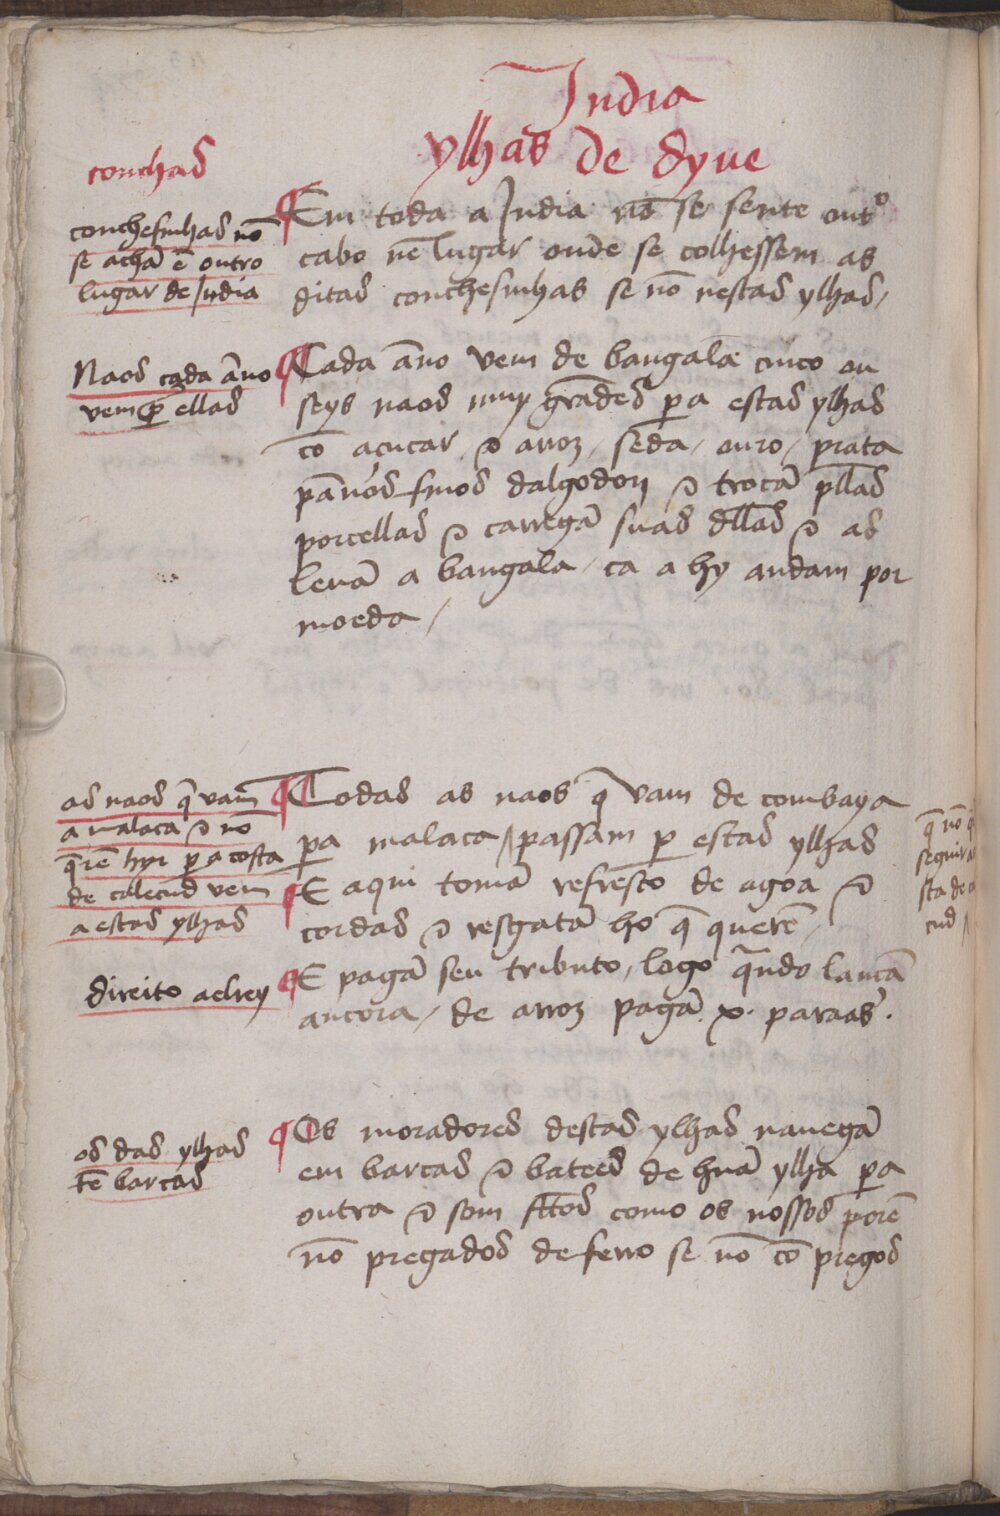 India
ylhas de dyue
conchas
conchesinhas nõ
se achã ẽ outro
lugar de Jndia
¶Em toda a Jndia nõ se sente outº
cabo nẽ lugar onde se colhessem as
ditas conchesinhas se nõ nestas ylhas /
Naos cada ãno
vem ꝑ ellas
¶Cada ãno vem de bangala cinco ou
seys naos muy grãdes ꝑa estas ylhas
cõ açucar ⁊ arroz / seda / ouro / prata
pãnos finos dalgodon ⁊ trocã pllas
porcellas ⁊ carregã suas dllas ⁊ as
leuã a bangala / ca a hy andam por
moeda /
as naos q̃ vam
a malaca ⁊ nõ
q̃rẽ hyr ꝑ a costa
de calecud vem
a estas ylhas
¶Todas as naos q̃ vam de combaya
ꝑa malaca / passam ꝑ estas ylhas
¶E aqui tomã refresco de agoa ⁊
cordas ⁊ resgatã ho q̃ querẽ /
direito aelrey
¶E pagã seu tributo / logo quãdo lancã
ancora / de arroz pagã .x. paraas.
os das ylhas
tẽ barcas
¶Os moradores destas ylhas nauegã
em barcas ⁊ batees de huã ylha ꝑa
outra ⁊ som fctos como os nossos porẽ
nõ pregados de ferro se nõ cõ pregos
q̃ nõ q̃
seguir
sta de
cud /